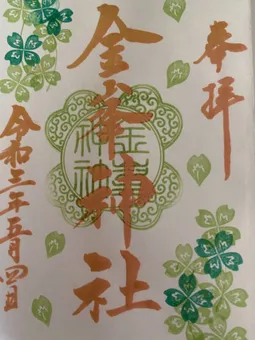 奉拝
金峯神社
令和三年五月四日
金峯
神社